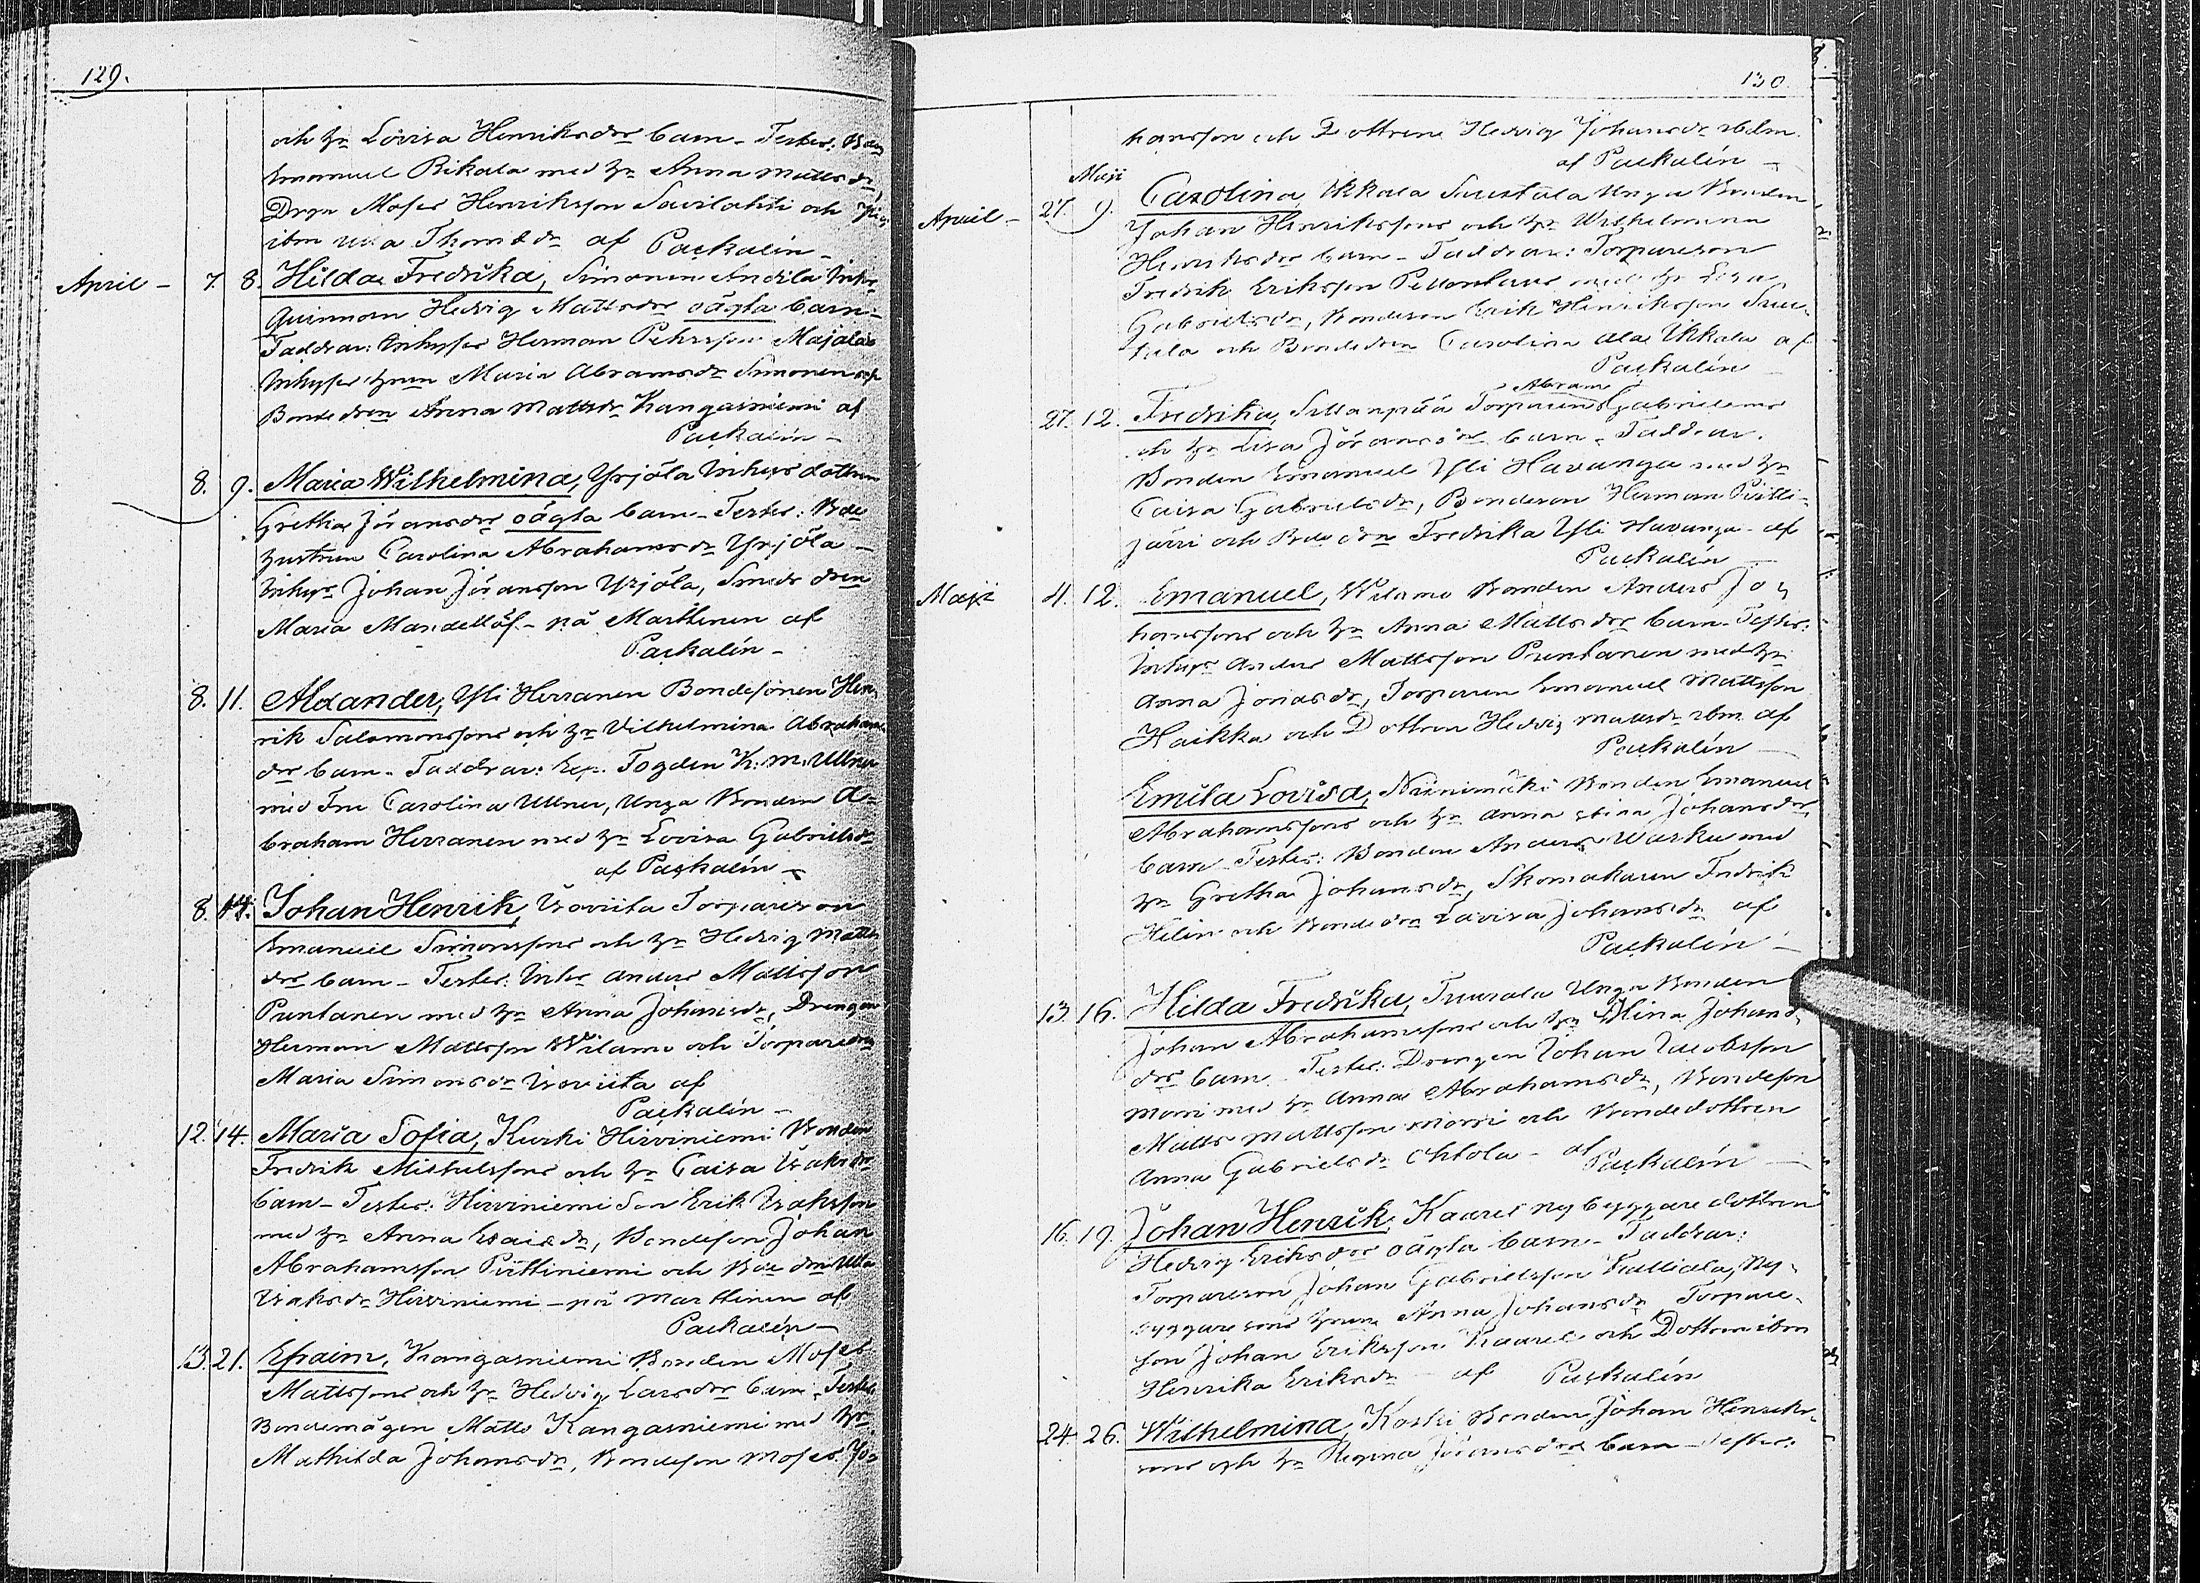 129.
och hr Lovisa Henriksdr barn - Testes: Bdn
Emanuel Rikala med hr Anna Mattsdr,
Drgn Moses Henriksson Savilahti och
ibm Ulla Thomsdr af Packalén -
April - 7. 8. Hilda Fredrika, Simonen Andila Inhs
Quinnan Hedvig Mattsdr oägta barn -
Faddrar: Inhyses Herman Pehrsson Majala
Inhyses hrun Maria Abramsdr Simonen och
Bondedren Anna Mattsdr Kangasniemi af
Packalén -
8. 9. Maria Wilhelmina, Yrjölä Inhys dottren
Gretha Jöransdr oägta barn - Testes: Bde
hustrun Carolina Abrahamsdr Yrjölä -
Inhys Johan Jöransson Yrjölä, Smeds dren
Maria Mandellöf - på Marttinen af
Packalén -
8. 11. Alexander, Yli Herranen Bondesonen Hen
rik Salomonssons och hr Vilhelmina Abrahams
dr barn - Faddrar: Exp. Fogden K. M. Ullner
med Fru Carolina Ullner, Unga Bonden A-
braham Herranen med hr Lovisa Gabrielsdr
af Packalén -
8. 14. Johan Henrik, Isoviita Torpareson
Emanuel Simonssons och hr Hedvig Matts
dr barn - Testes: Inhs Anders Mattsson
Puntanen med hr Anna Johansdr, Drengen
Herman Mattsson Wilamo och Torparedren
Maria Simonsdr Isoviita af
Packalén -
12. 14. Maria Sofia, Kurki Hirviniemi Bonden
Fredrik Michelssons och hr Caisa Isaksdr
barn - Testes: Hirviniemi Son Erik Isaksson
med hr Anna Isaksdr, Bondeson Johan
Abrahamsson Pirttiniemi och Bde dren Ulla
Isaksdr Hirviniemi - på Marttinen af
Packalén -
13. 21. Efraim, Kangasniemi Bonden Moses
Mattssons och hr Hedvig Larsdr barn - Testes
Bondemågen Matts Kangasniemi med hr
Mathilda Johansdr, Bondeson Moses Jo-
130.
hansson och Dottren Hedvig Johansdr ibdm.
af Packalén -
Maji
April - 27. 9. Carolina, Ikkala Saustala Unga Bonden
Johan Henrikssons och hr Wilhelmina
Henriksdr barn - Faddrar: Torpareson
Fredrik Eriksson med hr Lisa
Gabrielsdr, Bondeson Erik Henriksson Saus-
tala och Bondedren Carolina Ala Ikkala af
Packalén
Abram
27. 12. Fredrika, Sillanpää Torparen Gabrielsons
och hr Lisa Jöransdr barn - Faddrar.
Bonden Emanuel Yli Havunga med hr
Caisa Gabrielsdr, Bondeson Herman Pirtti-
järvi och Bde drn Fredrika Yli Havunga - af
Packalén
Maji 4. 12. Emanuel, Wilamo Bonden Anders Jo
hanssons och hr Anna Mattsdr barn - Testes:
Inhys Anders Mattsson Puntanen med hr
Anna Jonasdr, Torparen Emanuel Mattsson
Haikka och Dottren Hedvig Mattsdr ibm af
Packalén
Emila Lovisa, Niinimäki Bonden Emanuel
Abrahamssons och hr Anna Stina Johansdr,
barn - Testes: Bonden Anders Warku med
hr Gretha Johansdr, Skomakaren Fredrik
Helin och Bondedrn Lovisa Johansdr af
Packalén -
13. 16. Hilda Fredrika, Tuurala Unga Bonden
Johan Abrahamssons och hr Mina Johans-
dr barn - Testes: Drengen Johan Jacobsson
Morri med hr Anna Abrahamsdr, Bondeson
Matts Mattsson Morri och Bondedottren
Anna Gabrielsdr Ohtola - af Packalén
16. 19. Johan Henrik, Kaares nybyggare dottren
Hedvig Eriksdr oägta barn - Faddrar:
Torpareson Johan Gabrielsson Valliola, Ny-
byggare sons hrun Anna Johansdr Torpare-
son Johan Eriksson Kaares och Dottren ibm
Henrika Eriksdr - af Packalén
24. 26. Wilhelmina, Koski Bonden Johan Henriks-
sons och hr Regina Jöransdr barn - Testes: